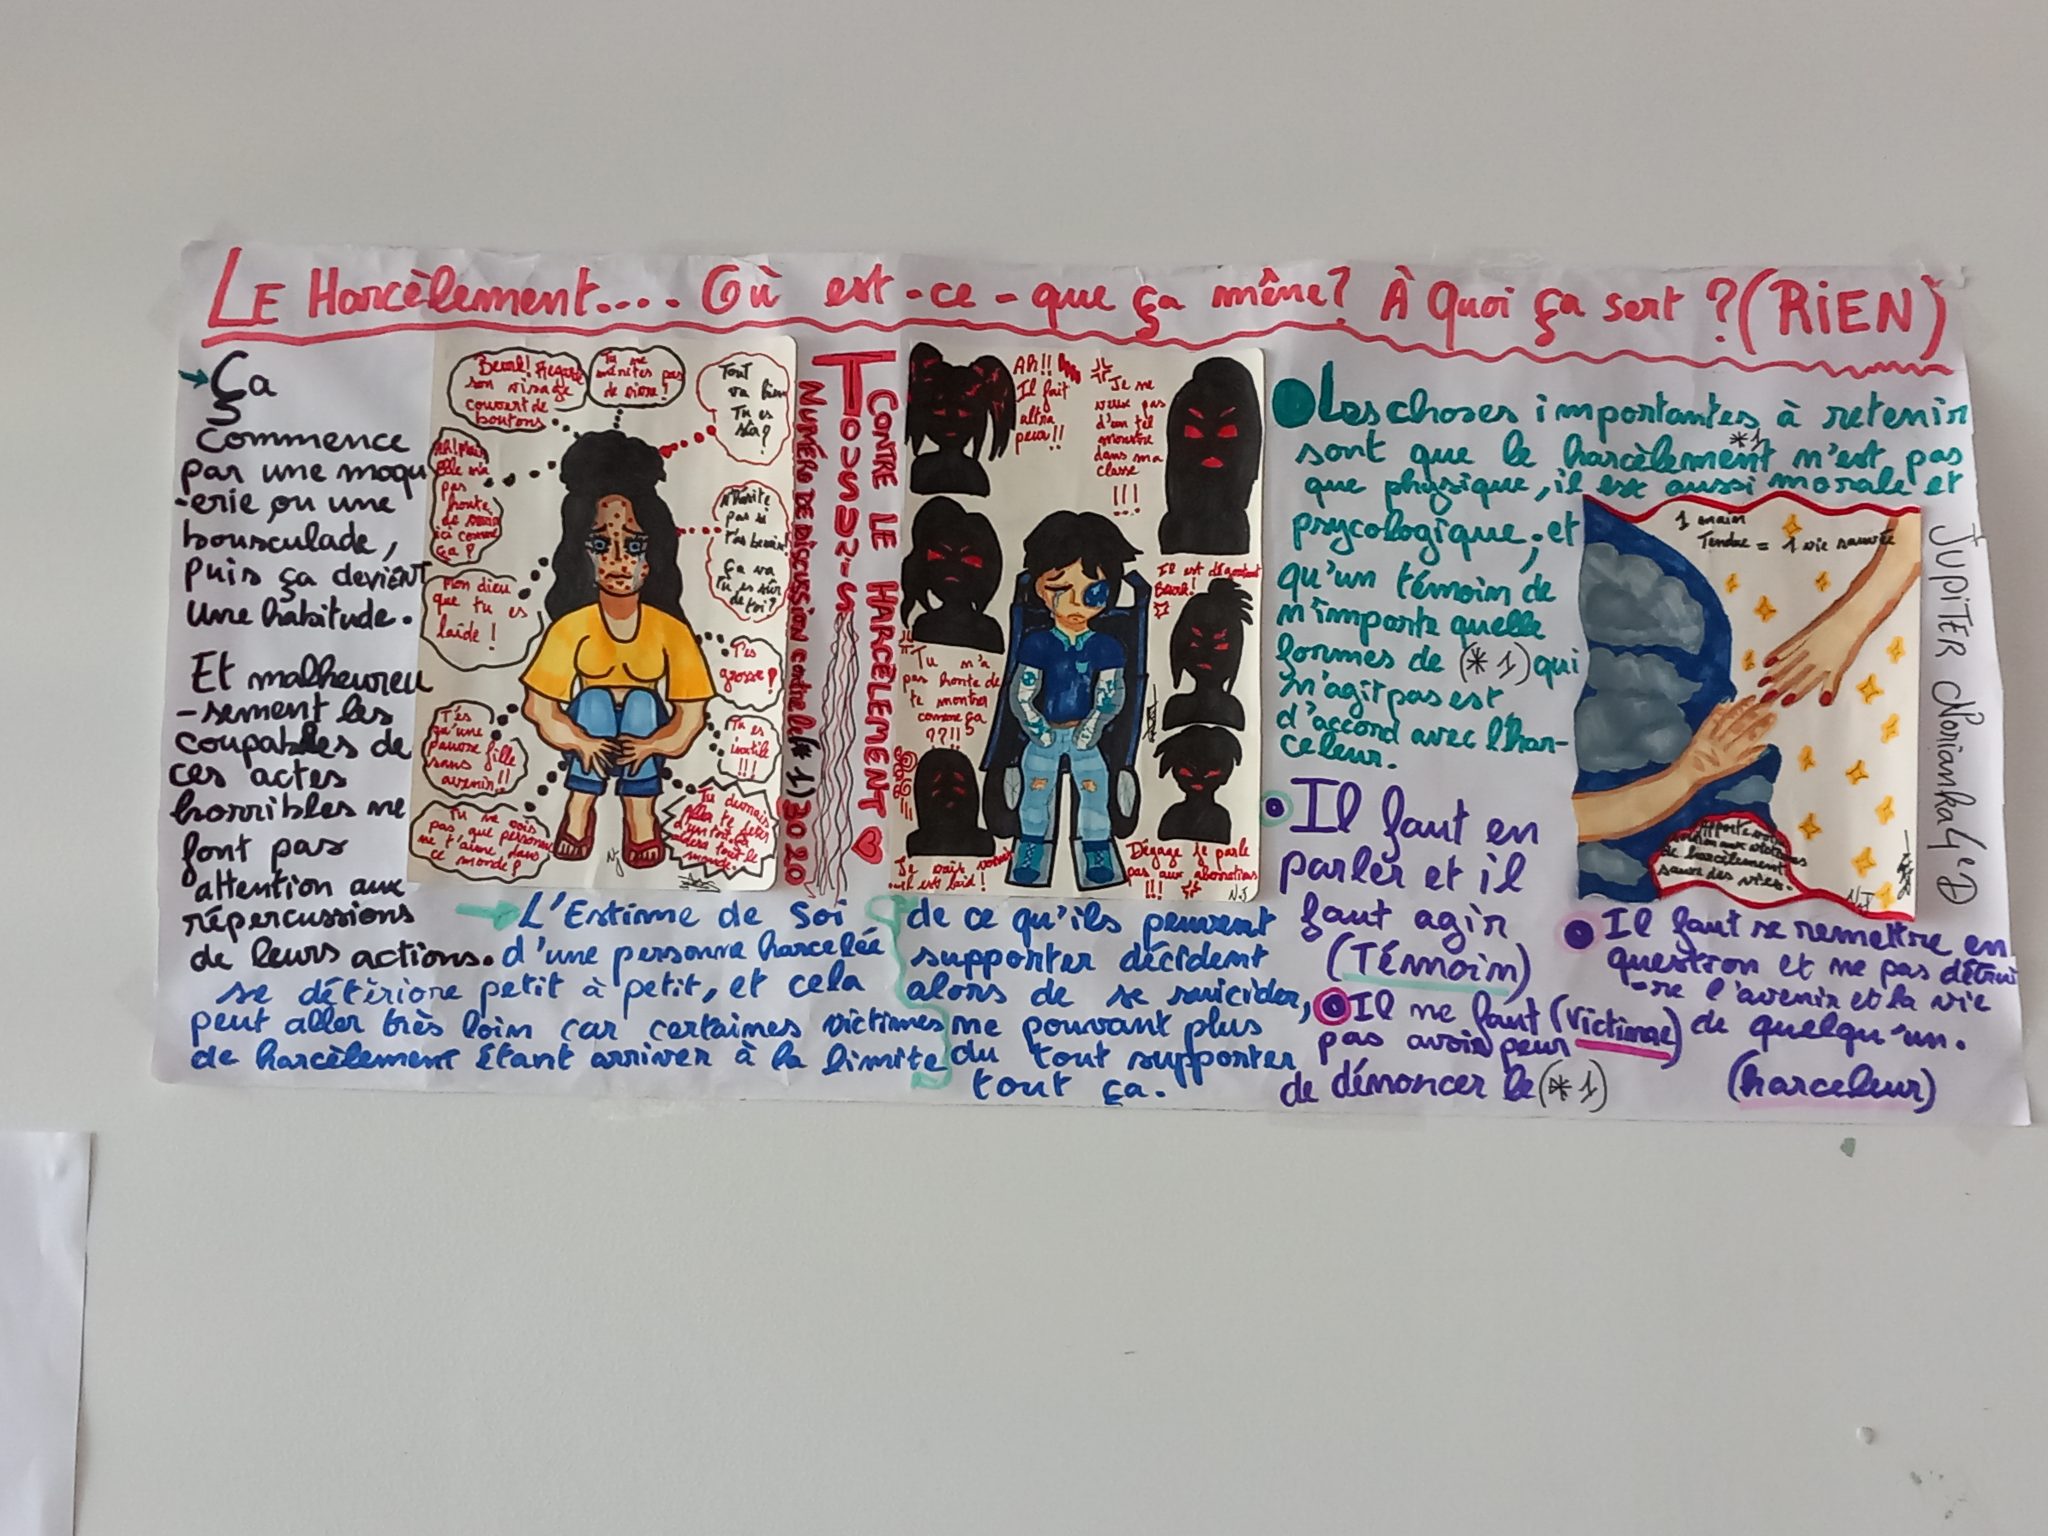 LE Harcèlement.... Où est-ce-que ça mène? À Quoi ça sert ? (RiEN)
Ça
Commence
par une moqu
-erie ou une
bousculade,
puis ça devient
une habitude.
Et malheureu
-sement les
coupables de
ces actes
horribles ne
font pas
attention aux
répercussions
de leurs actions.
Beurk! Regarde
son visage
couvert de
boutons
Tu ne
mérites pas
de vivre!
Tout
va bien
Tu es
sûr?
Ah! Mais
elle n'a
pas
honte
de venir
ici comme
ça?
N'hésite
pas si
t'as besoin!
Ça va
Tu es sûr
de toi?
Mon dieu
que tu es
laide!
T'es
grosse!
T'es
qu'une
pauvre fille
sans
avenir!!
Tu es
inutile
!!!
Tu ne vois
pas que personne
ne t'aime dans
ce monde?
Tu devrais
NJ
TOUS UNIS
CONTRE LE HARCÈLEMENT
NUMÉRO DE DISCUSSION contre le (*1) 30 20
Ah!!
Il fait
ultra
peur!!
Je ne
veux pas
d'un tel
monstre
dans ma
classe
!!!
Il est dégoutant
Beurk!
Tu n'a
pas honte de
te montrer
comme ça
??!!
Je vais vomir
il est laid!
Dégage je parle
pas aux aberrations
!!!
N.J
L'Estime de soi
d'une personne harcelée
se détériore petit à petit, et cela
peut aller très loin car certaines victimes
de harcèlement étant arriver à la limite
de ce qu'ils peuvent
supporter décident
alors de se suicider,
ne pouvant plus
du tout supporter
tout ça.
Les choses importantes à retenir
sont que le harcèlement *1 n'est pas
que physique, il est aussi morale et
psycologique, et
qu'un témoin de
n'importe quelle
formes de (*1) qui
n'agit pas est
d'accord avec l'har-
celeur.
1 main
Tendue = 1 vie sauvée
de harcèlement
sauve des vies.
N.J
JUPITER Norianka 4e D
Il faut en
parler et il
faut agir
(Témoin)
Il ne faut (Victime)
pas avoir peur
de dénoncer le (*1)
Il faut se remettre en
question et ne pas détrui
-re l'avenir et la vie
de quelqu'un.
(harceleur)